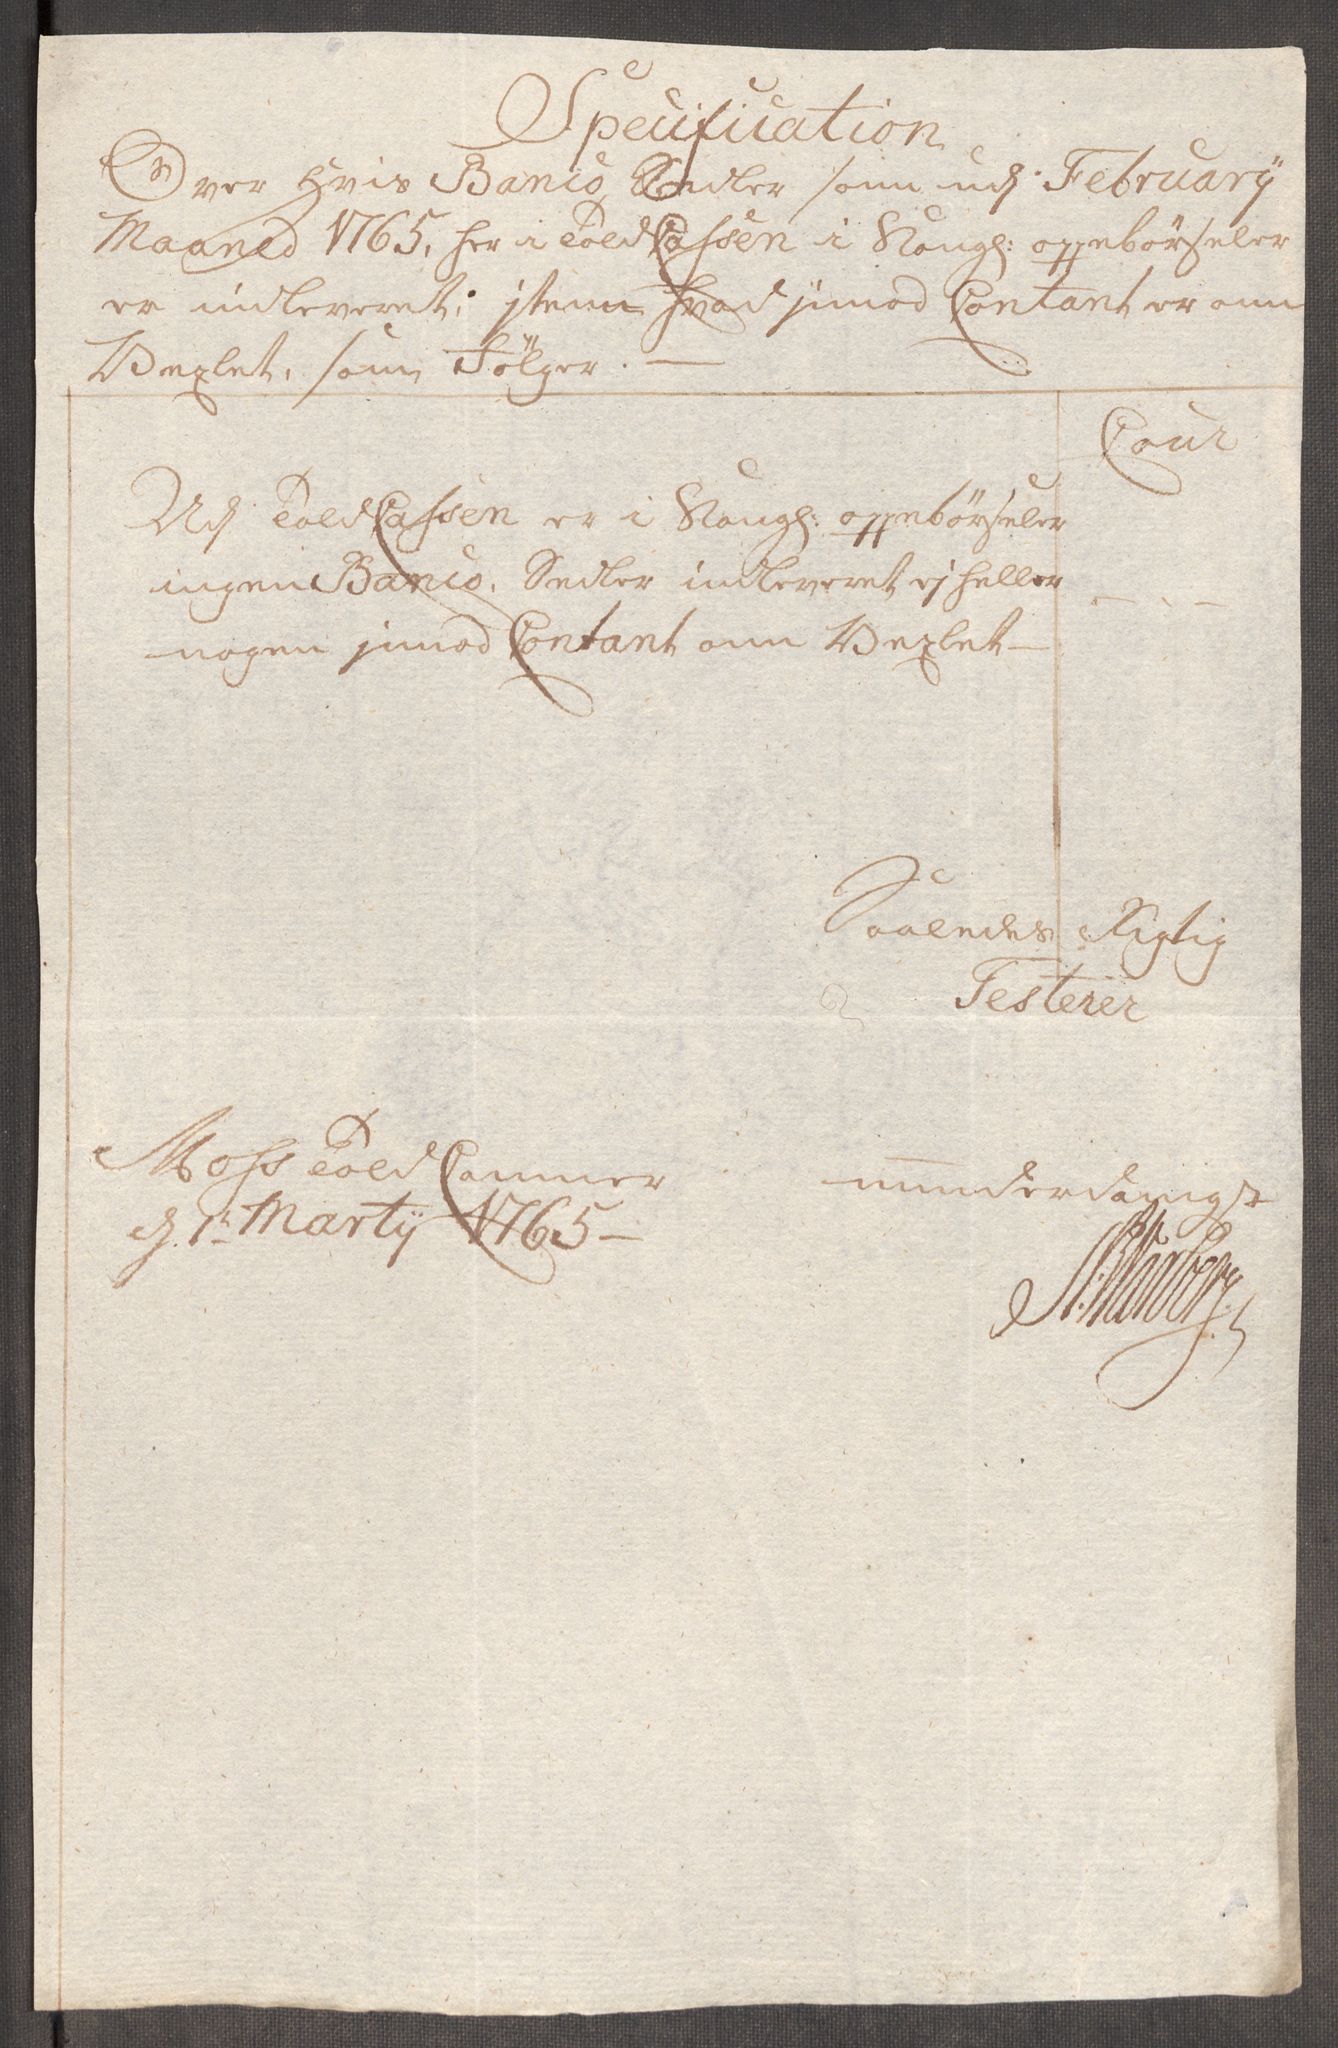 Specification
Over hvis Banco Sedler som udj February
Maaned 1765, her i Told Cassen i Kongl: oppebörseler
er indleveret; jtem hvad jmod Contant er om
Vexlet, som Fölger. —
Cour
Udj Told Cassen er i Kongl: oppebörseler
ingen Banco Sedler indleveret ej heller
nogen jmod Contant om Vexlet —
Saaledes Rigtig
Testerer
Moss Told Cammer
d. 1t Martij 1765 —
underdanigst